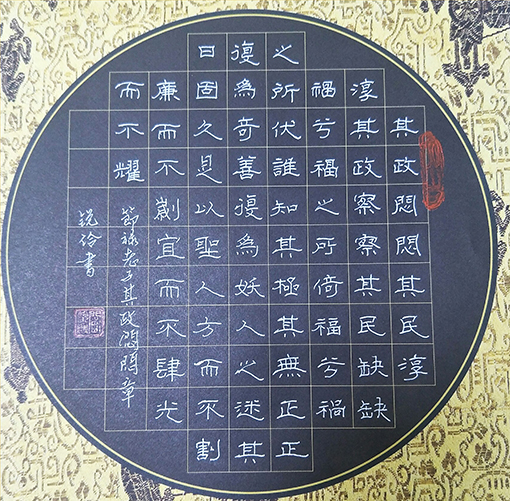 其政悶悶其民淳
淳其政察察其民缺缺
禍兮福之所倚福兮禍
之所伏誰知其極其無正正
復為奇善復為妖人之迷其
日固久是以聖人方而不割
廉而不劌宜而不肆光
而不耀
節錄老子其政悶悶章
锐伶書